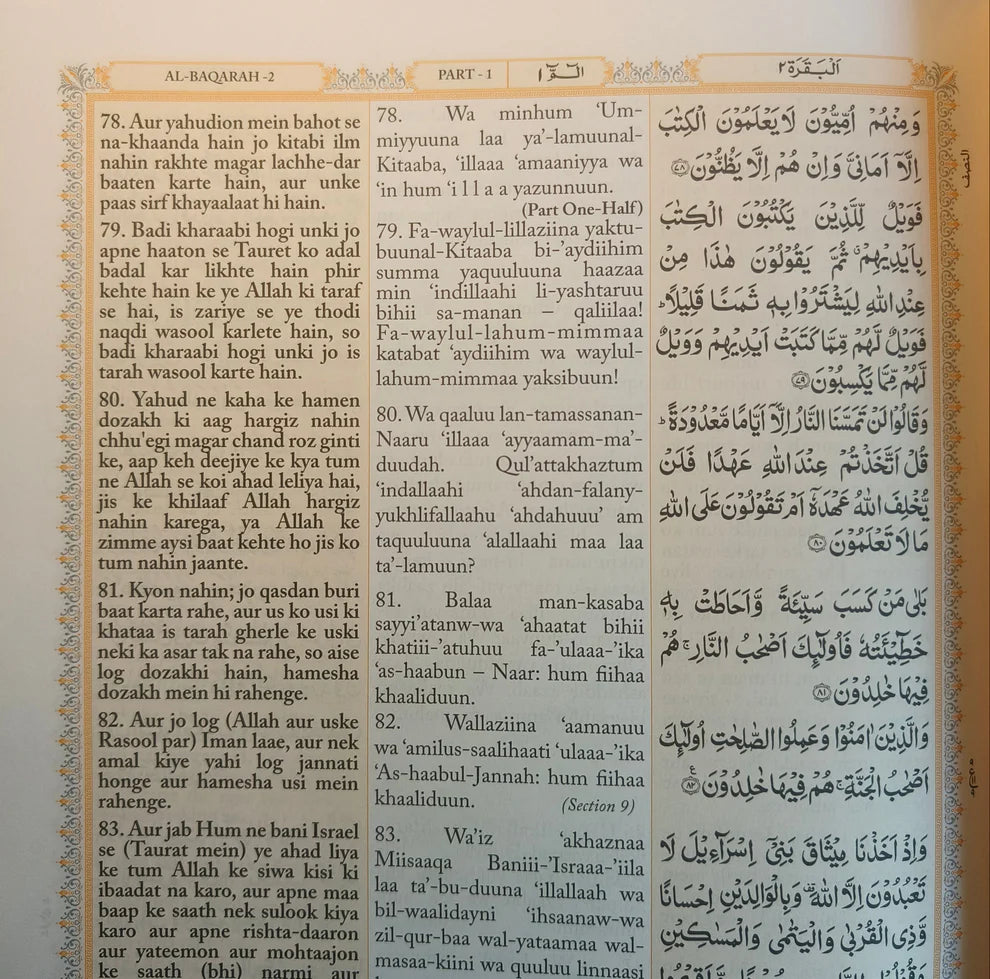 AL-BAQARAH -2
PART - 1
الٓمّٓ ١
اَلْبَقَرَة ٢
78. Aur yahudion mein bahot se
na-khaanda hain jo kitabi ilm
nahin rakhte magar lachhe-dar
baaten karte hain, aur unke
paas sirf khayaalaat hi hain.
79. Badi kharaabi hogi unki jo
apne haaton se Tauret ko adal
badal kar likhte hain phir
kehte hain ke ye Allah ki taraf
se hai, is zariye se ye thodi
naqdi wasool karlete hain, so
badi kharaabi hogi unki jo is
tarah wasool karte hain.
80. Yahud ne kaha ke hamen
dozakh ki aag hargiz nahin
chhu'egi magar chand roz ginti
ke, aap keh deejiye ke kya tum
ne Allah se koi ahad leliya hai,
jis ke khilaaf Allah hargiz
nahin karega, ya Allah ke
zimme aysi baat kehte ho jis ko
tum nahin jaante.
81. Kyon nahin; jo qasdan buri
baat karta rahe, aur us ko usi ki
khataa is tarah gherle ke uski
neki ka asar tak na rahe, so aise
log dozakhi hain, hamesha
dozakh mein hi rahenge.
82. Aur jo log (Allah aur uske
Rasool par) Iman laae, aur nek
amal kiye yahi log jannati
honge aur hamesha usi mein
rahenge.
83. Aur jab Hum ne bani Israel
se (Taurat mein) ye ahad liya
ke tum Allah ke siwa kisi ki
ibaadat na karo, aur apne maa
baap ke saath nek sulook kiya
karo aur apne rishta-daaron
aur yateemon aur mohtaajon
ke saath (bhi) narmi aur
78. Wa minhum ‘Um-
miyyuuna laa ya’-lamuunal-
Kitaaba, ‘illaaa ‘amaaniyya wa
‘in hum ‘i l l a a yazunnuun.
(Part One-Half)
79. Fa-waylul-lillaziina yaktu-
buunal-Kitaaba bi-’aydiihim
summa yaquuluuna haazaa
min ‘indillaahi li-yashtaruu
bihii sa-manan – qaliilaa!
Fa-waylul-lahum-mimmaa
katabat ‘aydiihim wa waylul-
lahum-mimmaa yaksibuun!
80. Wa qaaluu lan-tamassanan-
Naaru ‘illaaa ‘ayyaamam-ma’-
duudah. Qul’attakhaztum
‘indallaahi ‘ahdan-falany-
yukhlifallaahu ‘ahdahuuu’ am
taquuluuna ‘alallaahi maa laa
ta’-lamuun?
81. Balaa man-kasaba
sayyi’atanw-wa ‘ahaatat bihii
khatiii-’atuhuu fa-’ulaaa-’ika
‘as-haabun – Naar: hum fiihaa
khaaliduun.
82. Wallaziina ‘aamanuu
wa ‘amilus-saalihaati ‘ulaaa-’ika
‘As-haabul-Jannah: hum fiihaa
khaaliduun.
(Section 9)
83. Wa’iz ‘akhaznaa
Miisaaqa Baniii-’Israaa-’iila
laa ta’-bu-duuna ‘illallaah wa
bil-waalidayni ‘ihsaanaw-wa
zil-qur-baa wal-yataamaa wal-
masaa-kiini wa quuluu linnaasi
وَمِنْهُمْ اُمِّيُّوْنَ لَا يَعْلَمُوْنَ الْكِتٰبَ
اِلَّآ اَمَانِيَّ وَاِنْ هُمْ اِلَّا يَظُنُّوْنَ ۝٧٨
فَوَيْلٌ لِّلَّذِيْنَ يَكْتُبُوْنَ الْكِتٰبَ
بِاَيْدِيْهِمْ ۗ ثُمَّ يَقُوْلُوْنَ هٰذَا مِنْ
عِنْدِ اللّٰهِ لِيَشْتَرُوْا بِهٖ ثَمَنًا قَلِيْلًا ؕ
فَوَيْلٌ لَّهُمْ مِّمَّا كَتَبَتْ اَيْدِيْهِمْ وَوَيْلٌ
لَّهُمْ مِّمَّا يَكْسِبُوْنَ ۝٧٩
وَقَالُوْا لَنْ تَمَسَّنَا النَّارُ اِلَّآ اَيَّامًا مَّعْدُوْدَةً ؕ
قُلْ اَتَّخَذْتُمْ عِنْدَ اللّٰهِ عَهْدًا فَلَنْ
يُّخْلِفَ اللّٰهُ عَهْدَهٗٓ اَمْ تَقُوْلُوْنَ عَلَى اللّٰهِ
مَا لَا تَعْلَمُوْنَ ۝٨٠
بَلٰى مَنْ كَسَبَ سَيِّئَةً وَّاَحَاطَتْ بِهٖ
خَطِيْٓئَتُهٗ فَاُولٰٓئِكَ اَصْحٰبُ النَّارِ ۚ هُمْ
فِيْهَا خٰلِدُوْنَ ۝٨١
وَالَّذِيْنَ اٰمَنُوْا وَعَمِلُوا الصّٰلِحٰتِ اُولٰٓئِكَ
اَصْحٰبُ الْجَنَّةِ ۚ هُمْ فِيْهَا خٰلِدُوْنَ ۝٨٢
وَاِذْ اَخَذْنَا مِيْثَاقَ بَنِيْٓ اِسْرَآءِيْلَ لَا
تَعْبُدُوْنَ اِلَّا اللّٰهَ ۫ وَبِالْوَالِدَيْنِ اِحْسَانًا
وَّذِى الْقُرْبٰى وَالْيَتٰمٰى وَالْمَسٰكِيْنِ
النصف